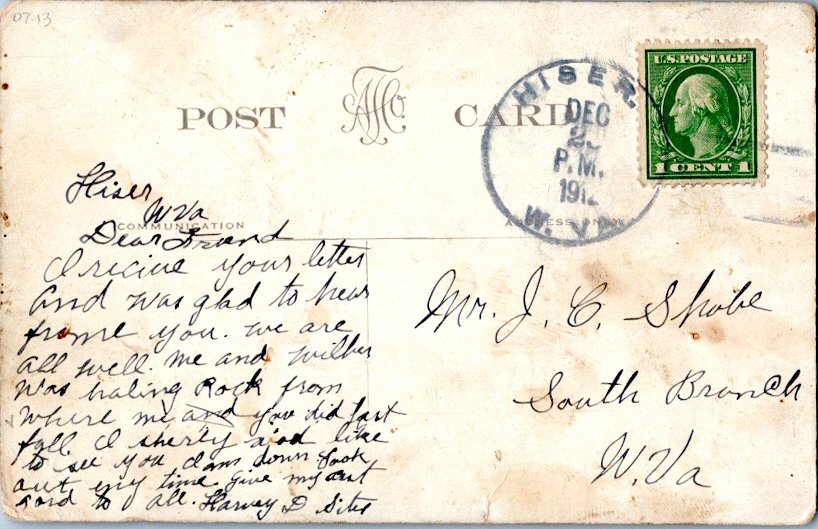 07-13
POST CARD
HISER.
DEC
P.M.
191
W. VA.
U.S. POSTAGE
1 CENT 1
Hiser
W Va
COMMUNICATION
ADDRESS ONLY
Dear Friend
I recive your letter
and was glad to hear
frome you. we are
all well. me and Wilber
was haling Rock from
where me and you did last
fall. I sherly
like
to see you
down
out
time give my
card to all. Harvey D Sites
Mr. J. C. Shobe
South Branch
W. Va